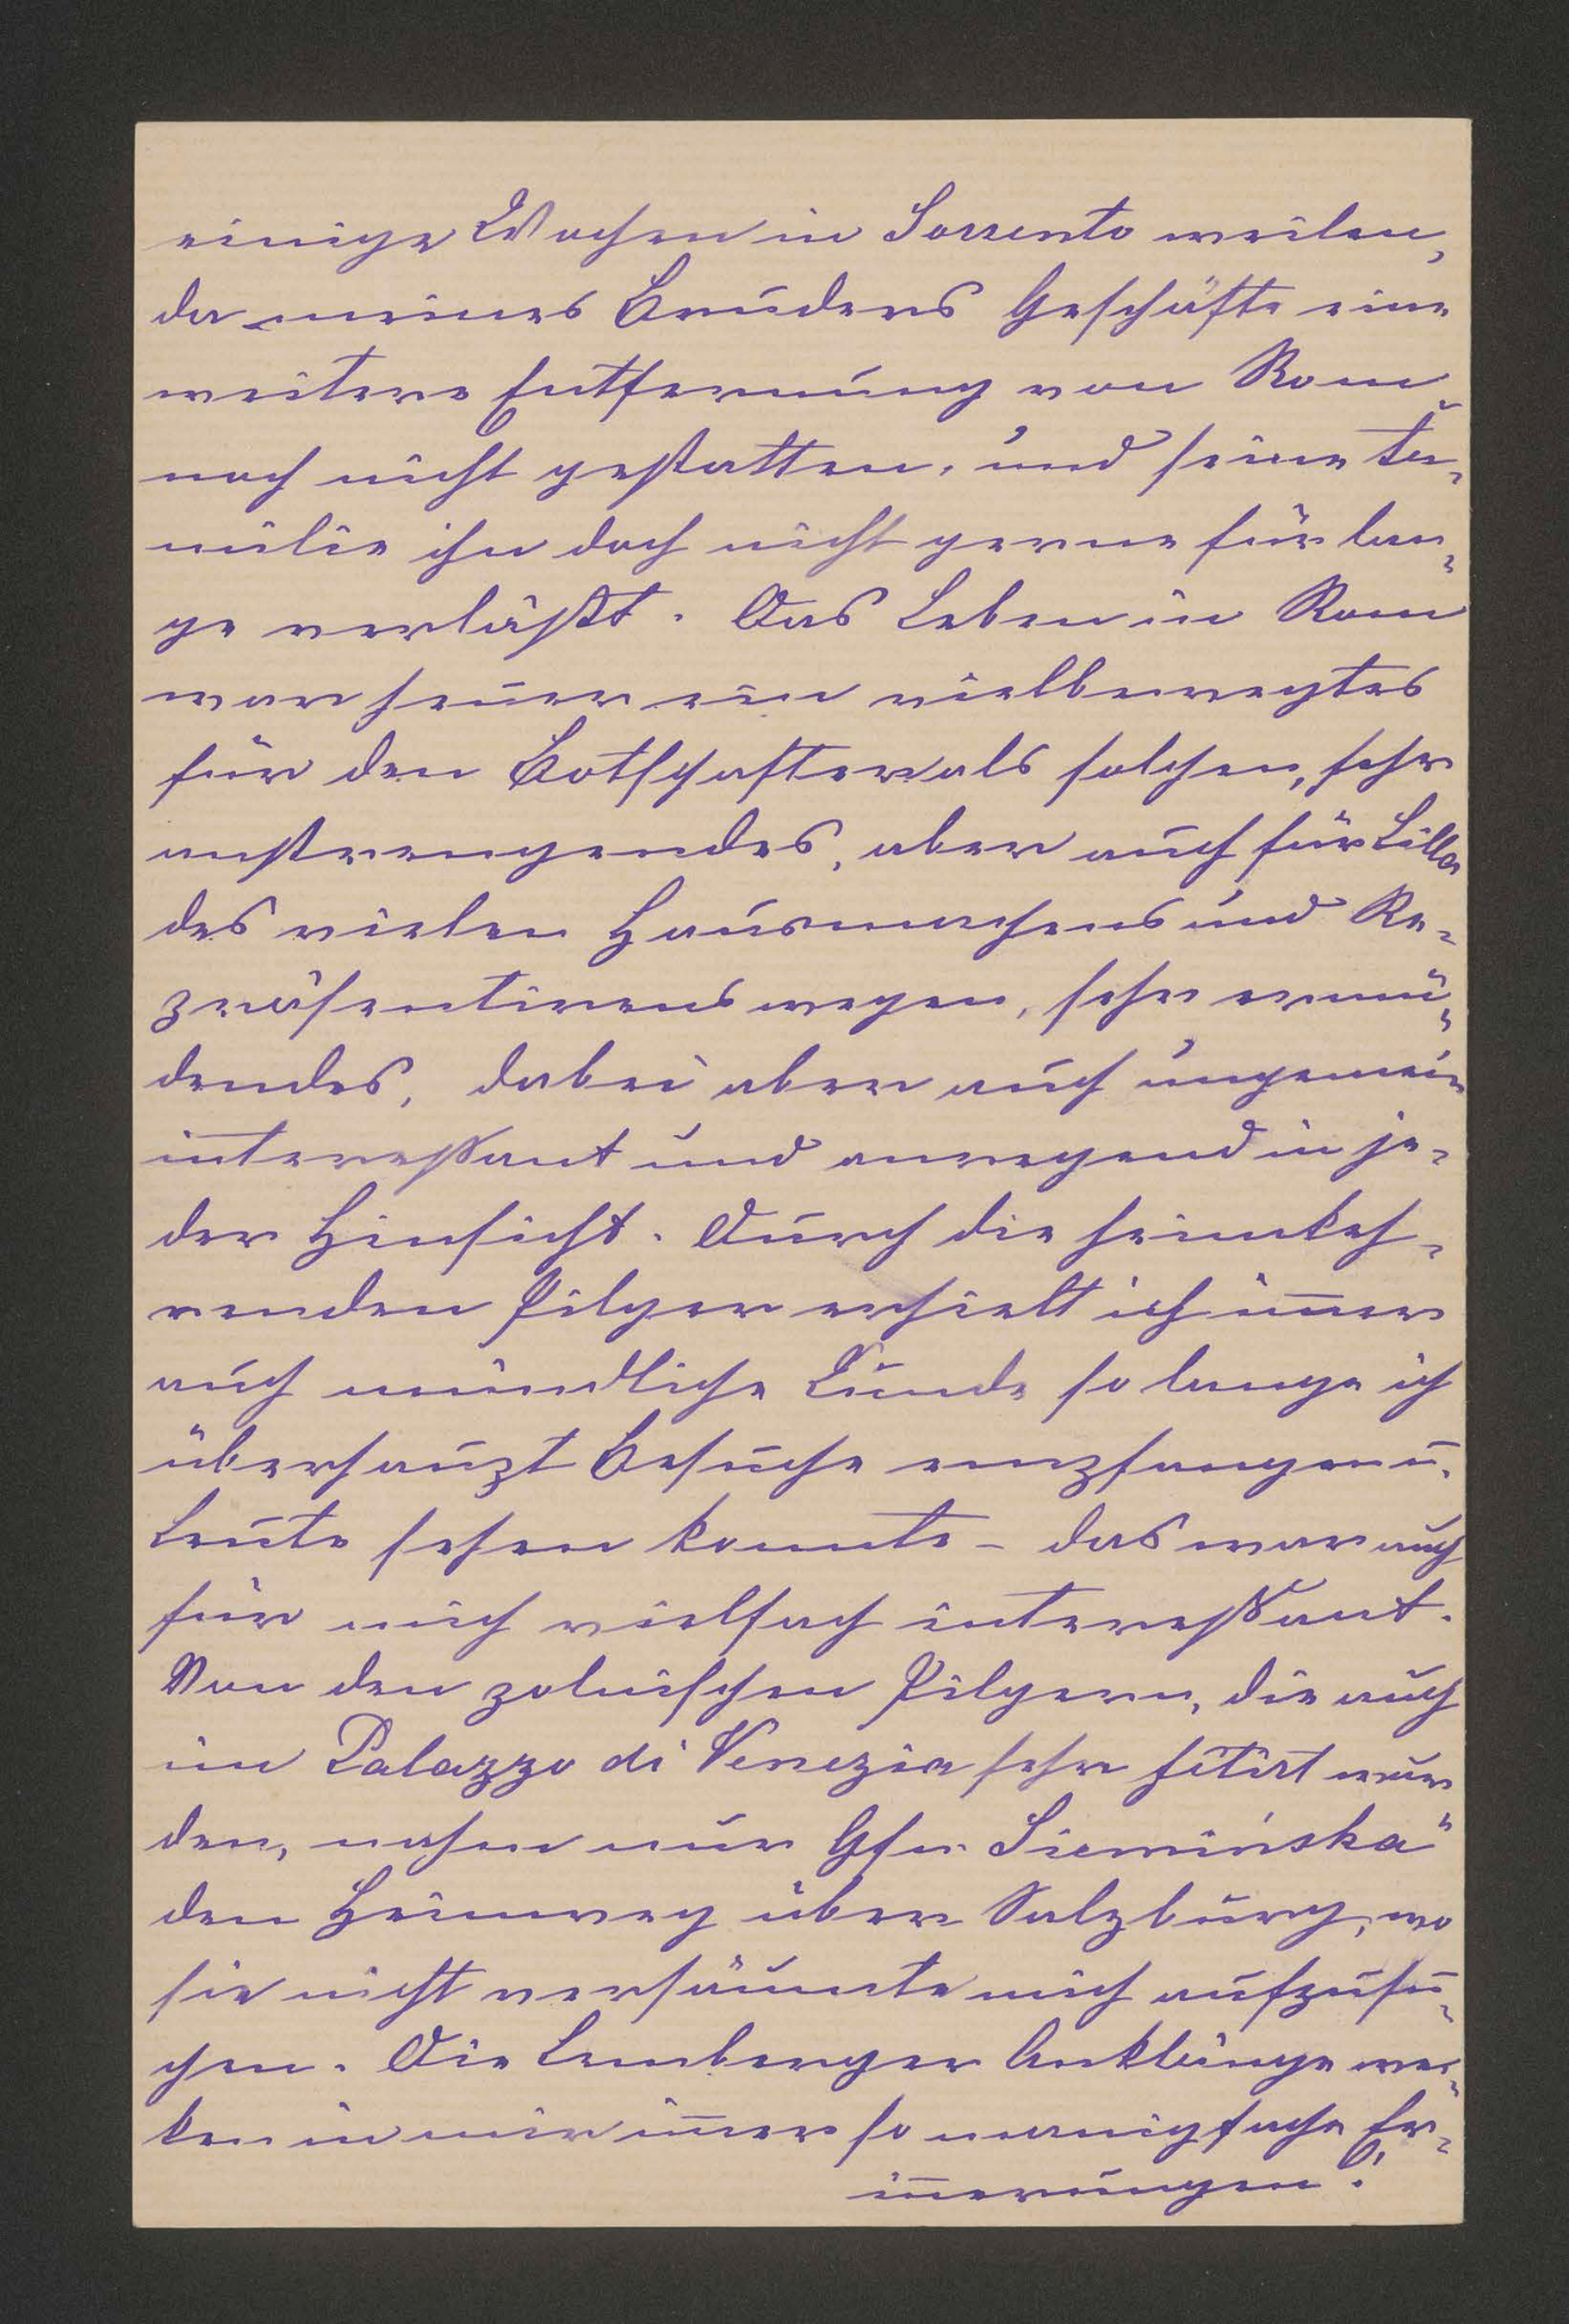 einige Wochen in Sorrento weilen,
da meines Bruders Geschäfte eine
weitere Entfernung von Rom
noch nicht gestatten, und seine Fa-
milie ihn doch nicht gerne für lan-
ge verläßt. Das Leben in Rom
war heuer ein vielbewegtes
für den Botschafter als solchen, sehr
anstrengendes, aber auch für Lilla
des vielen Hausmachens und Re-
präsentirens wegen, sehr ermü-
dendes, dabei aber auch ungemein
interessant und anregend in je-
der Hinsicht. Durch die heimkeh-
renden Pilger erhielt ich im̅er
auch mündliche Kunde so lange ich
überhaupt Besuche empfangen u.
Leute sehen konnte – das war auch
für mich vielfach interessant.
Von den polnischen Pilgern, die auch
im Palazzo di Venezia sehr fêtirt wur
den, nahm nur Gfn. Siemińska"
den Heimweg über Salzburg, wo
sie nicht versäumte mich aufzusu-
chen. Die Lemberger Anklänge wec-
ken in mir im̅er so manigfache Er-
in̅erungen!